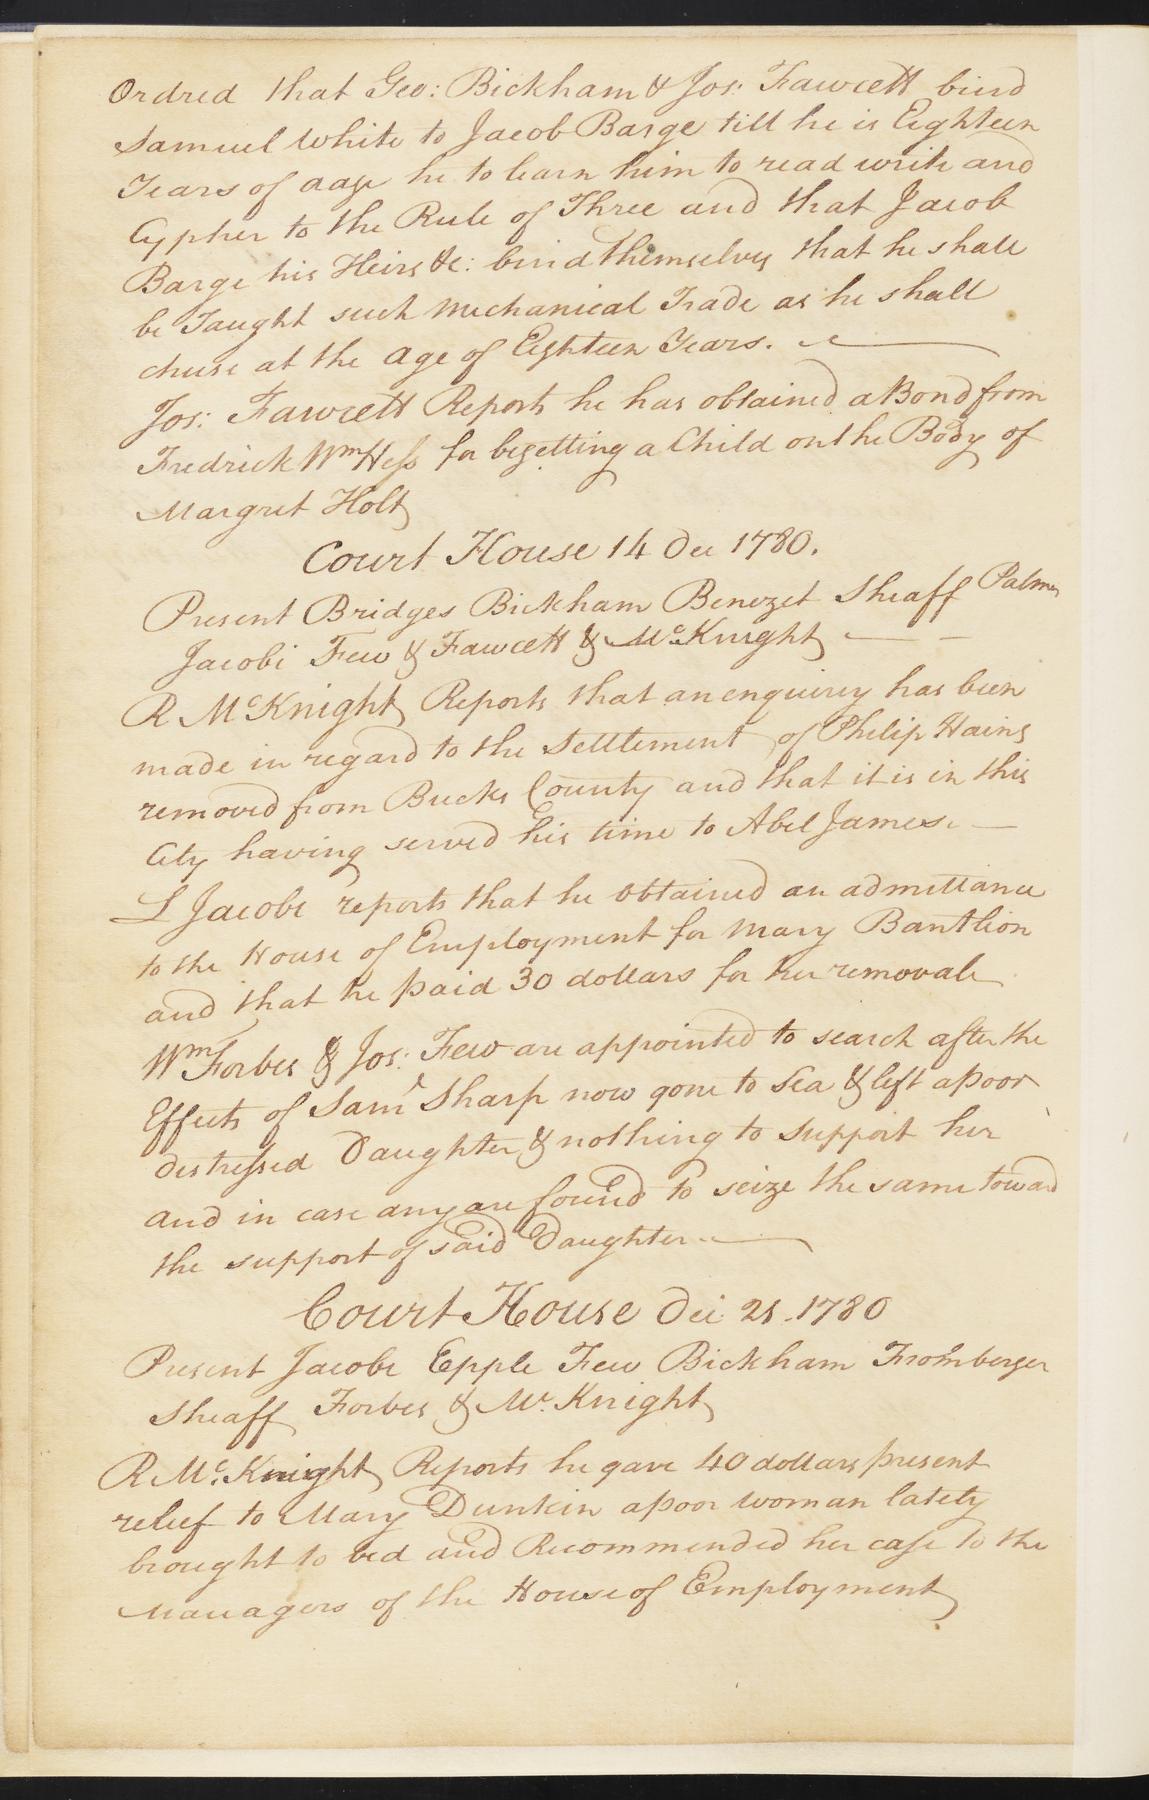 Ordred that Geo: Bickham & Jos: Fawcett bind
Samuel White to Jacob Barge till he is Eighteen
Years of aage he to learn him to read write and
Cypher to the Rule of Three and that Jacob
Barge his Heirs &c: bind themselves that he shall
be Taught such Mechanical Trade as he shall
chuse at the age of Eighteen Years.
Jos: Fawcett Reports he has obtained a Bond from
Fredrick Wm Hess for begetting a Child on the Body of
Margret Holt
Court House 14 Dec 1780.
Present Bridges Bickham Benezet Sheaff Palmer
Jacobi Few & Fawcett & McKnight
R McKnight Reports that an enquirey has been
made in regard to the Settlement of Philip Hains
removed from Bucks County and that it is in this
City having served his time to Abel James.
L Jacobi reports that he obtained an admittance
to the House of Employment for Mary Bantlion
and that he paid 30 dollars for her removale
Wm Forbes & Jos: Few are appointed to search after the
Effects of Saml Sharp now gone to Sea & left a poor
distressed Daughter & nothing to support her
and in case any are found to seize the same toward
the support of said Daughter
Court House Dec 21. 1780
Present Jacobi Epple Few Bickham Fromberger
Sheaff Forbes & Mc.Knight
R Mc.Knight Reports he gave 40 dollars present
relief to Mary Dunkin a poor woman lately
brought to bed and Recommended her case to the
Managers of the House of Employment